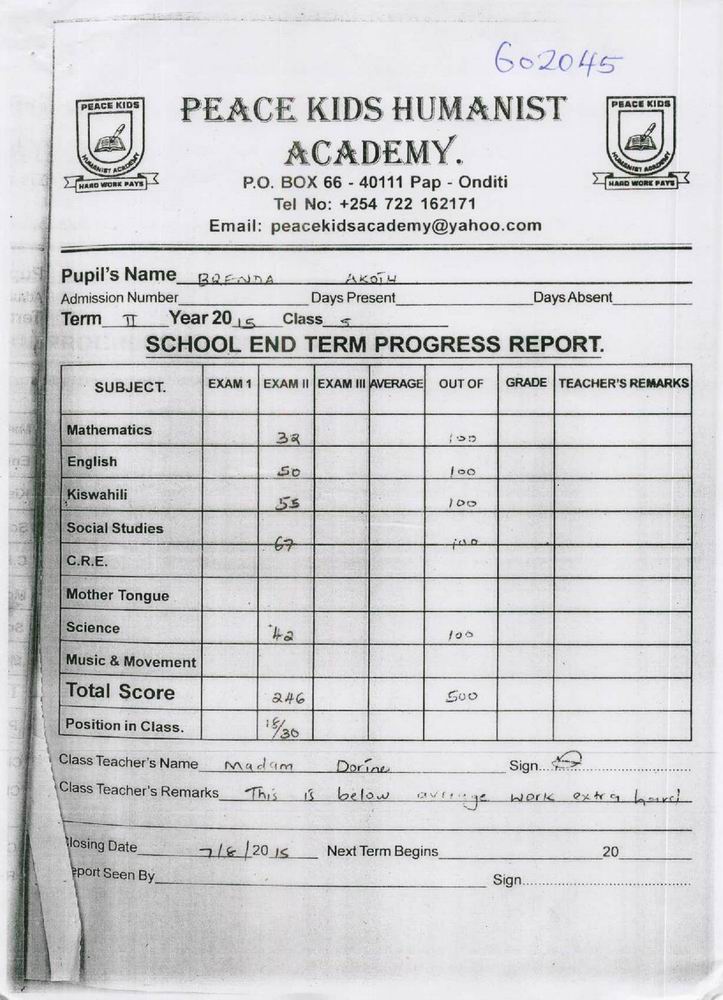 602045
PEACE KIDS
HUMANIST ACADEMY
HARD WORK PAYS
PEACE KIDS HUMANIST
ACADEMY.
PEACE KIDS
HUMANIST ACADEMY
HARD WORK PAYS
P.O. BOX 66 - 40111 Pap - Onditi
Tel No: +254 722 162171
Email: peacekidsacademy@yahoo.com
Pupil's Name BRENDA AKOTH
Admission Number Days Present Days Absent
Term II Year 2015 Class 5
SCHOOL END TERM PROGRESS REPORT.
SUBJECT. EXAM 1 EXAM II EXAM III AVERAGE OUT OF GRADE TEACHER'S REMARKS
Mathematics 32 100
English 50 100
Kiswahili 55 100
Social Studies 67 100
C.R.E.
Mother Tongue
Science 42 100
Music & Movement
Total Score 246 500
Position in Class. 18/30
Class Teacher's Name Madam Dorine Sign.
Class Teacher's Remarks This is below average work extra hard
losing Date 7/8/2015 Next Term Begins 20
eport Seen By Sign.